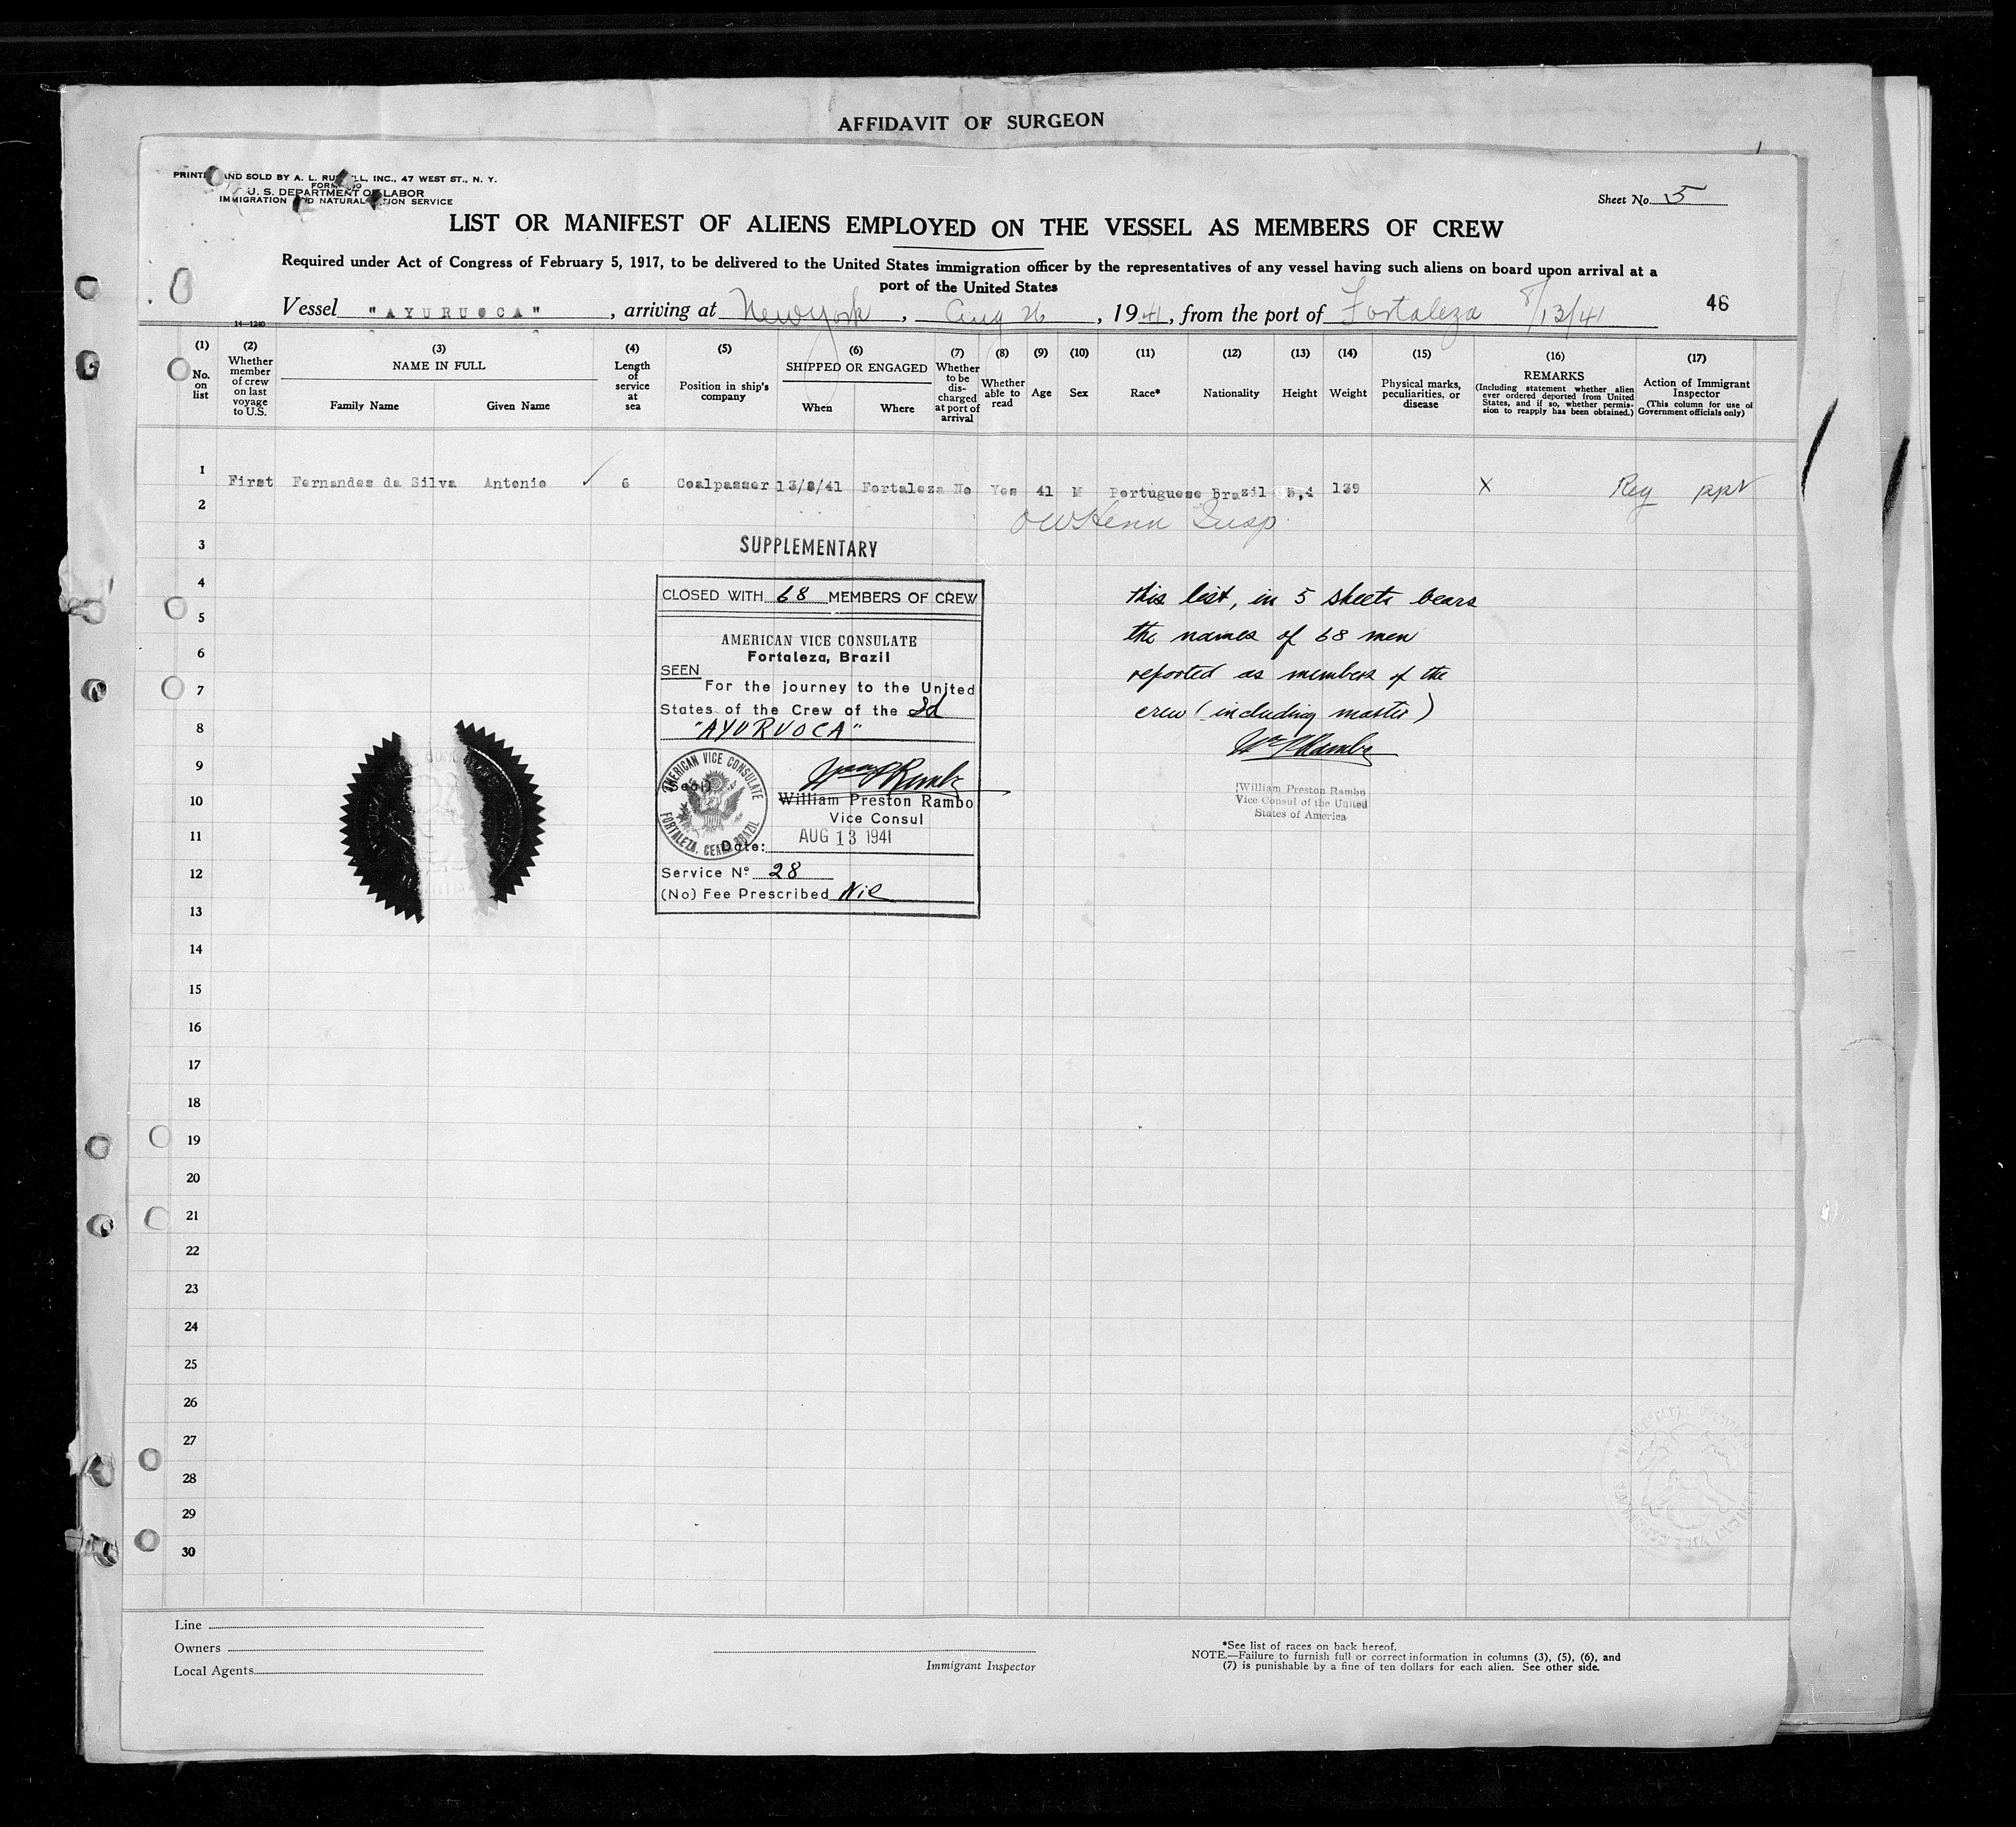 AFFIDAVIT OF SURGEON
PRINTED AND SOLD BY A. L. RUSSELL, INC., 47 WEST ST., N. Y.
U. S. DEPARTMENT OF LABOR
IMMIGRATION AND NATURALIZATION SERVICE
Sheet No. 5
LIST OR MANIFEST OF ALIENS EMPLOYED ON THE VESSEL AS MEMBERS OF CREW
Required under Act of Congress of February 5, 1917, to be delivered to the United States immigration officer by the representatives of any vessel having such aliens on board upon arrival at a
port of the United States
Vessel "AYURUOCA", arriving at New York, Aug 26, 1941, from the port of Fortaleza 8/13/41
46
14-1240
(1) No. on list
(2) Whether member of crew on last voyage to U.S.
(3) NAME IN FULL
Family Name Given Name
(4) Length of service at sea
(5) Position in ship's company
(6) SHIPPED OR ENGAGED
When Where
(7) Whether to be discharged at port of arrival
(8) Whether able to read
(9) Age
(10) Sex
(11) Race*
(12) Nationality
(13) Height
(14) Weight
(15) Physical marks, peculiarities, or disease
(16) REMARKS
(Including statement whether alien ever ordered deported from United States, and if so, whether permission to reapply has been obtained.)
(17) Action of Immigrant Inspector
(This column for use of Government officials only)
1 First Fernandes da Silva Antonio ✓ 6 Coalpasser 13/8/41 Fortaleza No Yes 41 M Portuguese Brazil 5,4 139 X Reg ppr
2
3
SUPPLEMENTARY
4
CLOSED WITH 68 MEMBERS OF CREW
AMERICAN VICE CONSULATE
Fortaleza, Brazil
SEEN
For the journey to the United
States of the Crew of the Sd
"AYURUOCA"
AMERICAN VICE CONSULATE
FORTALEZA, CEARA, BRAZIL
(Seal)
Wm P Rambo
William Preston Rambo
Vice Consul
Date: AUG 13 1941
Service No. 28
(No) Fee Prescribed Nil
this list, in 5 sheets bears
the names of 68 men
reported as members of the
crew (including master)
Wm P Rambo
William Preston Rambo
Vice Consul of the United
States of America
5
6
7
8
9
10
11
12
13
14
15
16
17
18
19
20
21
22
23
24
25
26
27
28
29
30
Line
Owners
Local Agents
Immigrant Inspector
*See list of races on back hereof.
NOTE.—Failure to furnish full or correct information in columns (3), (5), (6), and
(7) is punishable by a fine of ten dollars for each alien. See other side.